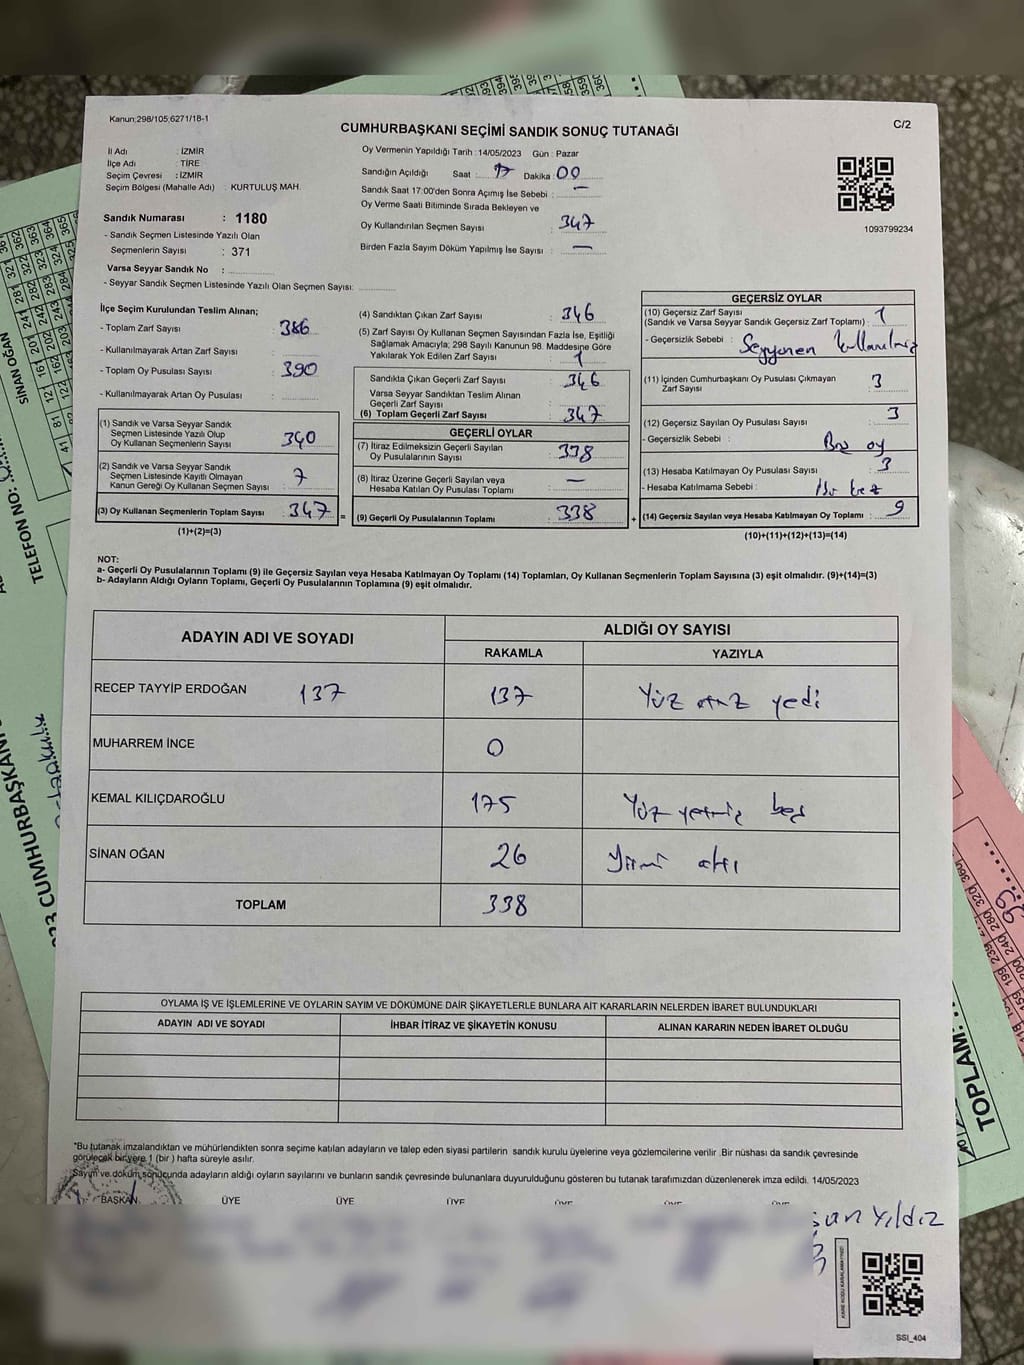 Kanun;298/105;6271/18-1
C/2
CUMHURBAŞKANI SEÇİMİ SANDIK SONUÇ TUTANAĞI
İl Adı : İZMİR
İlçe Adı : TİRE
Seçim Çevresi : İZMİR
Seçim Bölgesi (Mahalle Adı) : KURTULUŞ MAH.
Sandık Numarası : 1180
- Sandık Seçmen Listesinde Yazılı Olan
Seçmenlerin Sayısı : 371
Varsa Seyyar Sandık No :
- Seyyar Sandık Seçmen Listesinde Yazılı Olan Seçmen Sayısı:
Oy Vermenin Yapıldığı Tarih : 14/05/2023 Gün : Pazar
Sandığın Açıldığı Saat : 17 Dakika : 00
Sandık Saat 17:00'den Sonra Açımış İse Sebebi : —
Oy Verme Saati Bitiminde Sırada Bekleyen ve
Oy Kullandırılan Seçmen Sayısı : 347
Birden Fazla Sayım Döküm Yapılmış İse Sayısı : —
1093799234
İlçe Seçim Kurulundan Teslim Alınan;
- Toplam Zarf Sayısı : 386
- Kullanılmayarak Artan Zarf Sayısı :
- Toplam Oy Pusulası Sayısı : 390
- Kullanılmayarak Artan Oy Pusulası :
(1) Sandık ve Varsa Seyyar Sandık
Seçmen Listesinde Yazılı Olup
Oy Kullanan Seçmenlerin Sayısı : 340
(2) Sandık ve Varsa Seyyar Sandık
Seçmen Listesinde Kayıtlı Olmayan
Kanun Gereği Oy Kullanan Seçmen Sayısı : 7
(3) Oy Kullanan Seçmenlerin Toplam Sayısı : 347
(1)+(2)=(3)
(4) Sandıktan Çıkan Zarf Sayısı : 346
(5) Zarf Sayısı Oy Kullanan Seçmen Sayısından Fazla İse, Eşitliği
Sağlamak Amacıyla; 298 Sayılı Kanunun 98. Maddesine Göre
Yakılarak Yok Edilen Zarf Sayısı : 1
Sandıkta Çıkan Geçerli Zarf Sayısı : 346
Varsa Seyyar Sandıktan Teslim Alınan
Geçerli Zarf Sayısı :
(6) Toplam Geçerli Zarf Sayısı : 347
GEÇERLİ OYLAR
(7) İtiraz Edilmeksizin Geçerli Sayılan
Oy Pusulalarının Sayısı : 338
(8) İtiraz Üzerine Geçerli Sayılan veya
Hesaba Katılan Oy Pusulası Toplamı : —
= (9) Geçerli Oy Pusulalarının Toplamı : 338
GEÇERSİZ OYLAR
(10) Geçersiz Zarf Sayısı
(Sandık ve Varsa Seyyar Sandık Geçersiz Zarf Toplamı) : 1
- Geçersizlik Sebebi :
(11) İçinden Cumhurbaşkanı Oy Pusulası Çıkmayan
Zarf Sayısı : 3
(12) Geçersiz Sayılan Oy Pusulası Sayısı : 3
- Geçersizlik Sebebi : Boş oy
(13) Hesaba Katılmayan Oy Pusulası Sayısı : 3
- Hesaba Katılmama Sebebi :
+ (14) Geçersiz Sayılan veya Hesaba Katılmayan Oy Toplamı : 9
(10)+(11)+(12)+(13)=(14)
NOT:
a- Geçerli Oy Pusulalarının Toplamı (9) ile Geçersiz Sayılan veya Hesaba Katılmayan Oy Toplamı (14) Toplamları, Oy Kullanan Seçmenlerin Toplam Sayısına (3) eşit olmalıdır. (9)+(14)=(3)
b- Adayların Aldığı Oyların Toplamı, Geçerli Oy Pusulalarının Toplamına (9) eşit olmalıdır.
ADAYIN ADI VE SOYADI
ALDIĞI OY SAYISI
RAKAMLA YAZIYLA
RECEP TAYYİP ERDOĞAN 137 137 Yüz otuz yedi
MUHARREM İNCE 0
KEMAL KILIÇDAROĞLU 175 Yüz yetmiş beş
SİNAN OĞAN 26 Yirmi altı
TOPLAM 338
OYLAMA İŞ VE İŞLEMLERİNE VE OYLARIN SAYIM VE DÖKÜMÜNE DAİR ŞİKAYETLERLE BUNLARA AİT KARARLARIN NELERDEN İBARET BULUNDUKLARI
ADAYIN ADI VE SOYADI İHBAR İTİRAZ VE ŞİKAYETİN KONUSU ALINAN KARARIN NEDEN İBARET OLDUĞU
*Bu tutanak imzalandıktan ve mühürlendikten sonra seçime katılan adayların ve talep eden siyasi partilerin sandık kurulu üyelerine veya gözlemcilerine verilir .Bir nüshası da sandık çevresinde
görülecek bir yere 1 (bir ) hafta süreyle asılır.
Sayım ve döküm sonucunda adayların aldığı oyların sayılarını ve bunların sandık çevresinde bulunanlara duyurulduğunu gösteren bu tutanak tarafımızdan düzenlenerek imza edildi. 14/05/2023
BAŞKAN ÜYE ÜYE ÜYE ÜYE ÜYE ÜYE
Yıldız
SSI_404
SİNAN OĞAN
TELEFON NO:
TOPLAM: